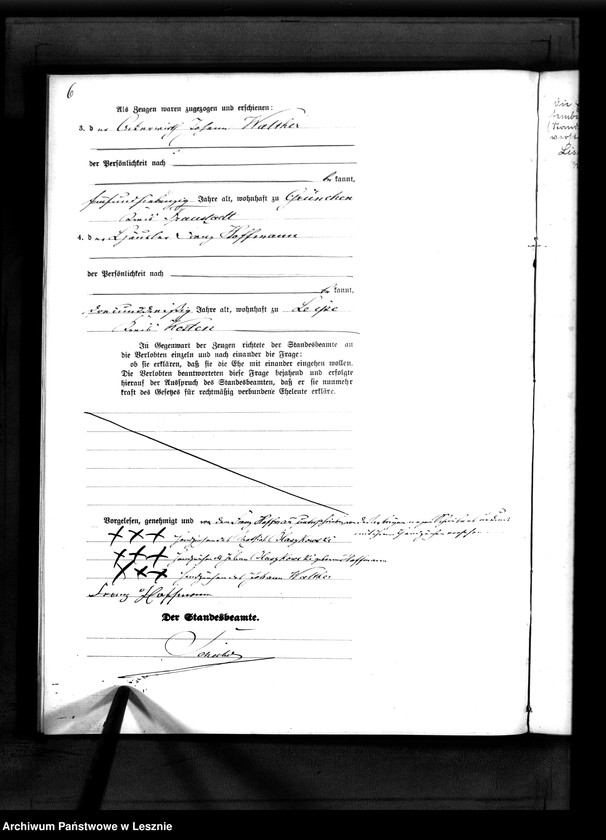 6
Als Zeugen waren zugezogen und erschienen:
3. der Ackerwirth Johann Walther
der Persönlichkeit nach
be kannt,
fünfundsiebenzig Jahre alt, wohnhaft zu Gründchen
Kreis Fraustadt
4. der Häusler Franz Hoffmann
der Persönlichkeit nach
be kannt,
dreiunddreißig Jahre alt, wohnhaft zu Leipe
Kreis Kosten
In Gegenwart der Zeugen richtete der Standesbeamte an
die Verlobten einzeln und nach einander die Frage:
ob sie erklären, daß sie die Ehe mit einander eingehen wollen.
Die Verlobten beantworteten diese Frage bejahend und erfolgte
hierauf der Ausspruch des Standesbeamten, daß er sie nunmehr
kraft des Gesetzes für rechtmäßig verbundene Eheleute erkläre.
Vorgelesen, genehmigt und von dem Franz Hoffmann unterschrieben, von den Uebrigen wegen
mit ihrem Handzeichen versehen
+++ Handzeichen des
+++ Handzeichen der geborene Hoffmann
+++ Handzeichen des Johann Walther
Franz Hoffmann
Der Standesbeamte.
Archiwum Państwowe w Lesznie